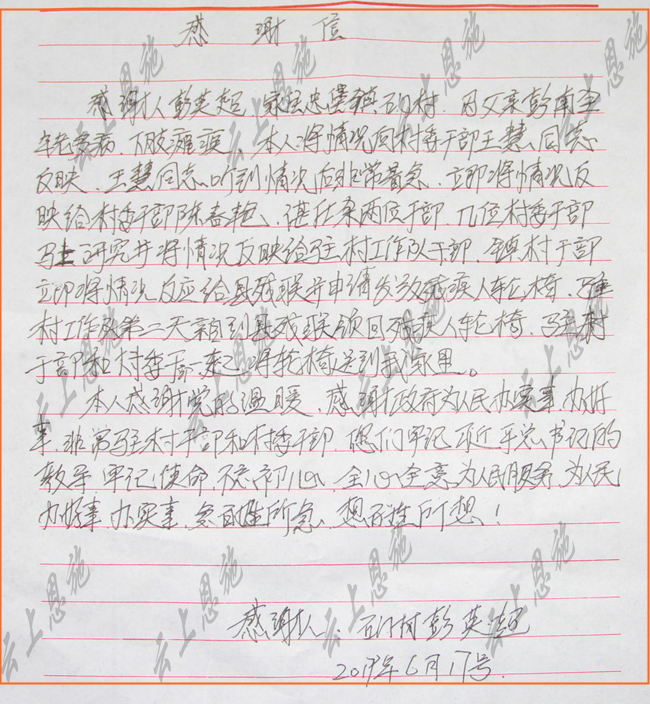 感 谢 信
感谢人彭英超，家住忠堡镇石门村，因父亲彭南圣
年老多病，下肢瘫痪，本人将情况向村委干部王慧同志
反映，王慧同志听到情况后非常着急，立即将情况反
映给村委干部陈春艳、谌红朵两位干部，几位村委干部
马上研究并将情况反映给驻村工作队干部，镇村干部
立即将情况反应给县残联并申请发放残疾人轮椅，驻
村工作队第二天亲到县残联领回残疾人轮椅，驻村
干部和村委干部一起将轮椅送到我家里。
本人感谢党的温暖，感谢政府为人民办实事，办好
事，非常驻村干部和村委干部，您们牢记习近平总书记的
教导，牢记使命，不忘初心，全心全意为人民服务，为人民
办好事，办实事，急百姓所急，想百姓所想！
感谢人：石门村彭英超
2019年6月17号.
云上恩施
云上恩施
云上恩施
云上恩施
云上恩施
云上恩施
云上恩施
云上恩施
云上恩施
云上恩施
云上恩施
云上恩施